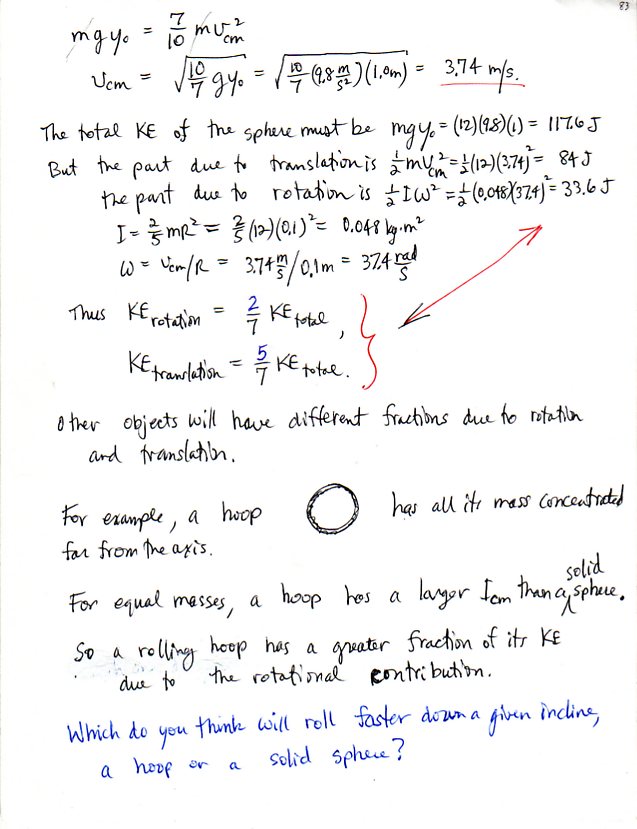 83
mgy₀ = 7/10 mv²cm
vcm = √(10/7 gy₀) = √(10/7 (9.8 m/s²)(1.0m)) = 3.74 m/s.
The total KE of the sphere must be mgy₀ = (12)(9.8)(1) = 117.6 J
But the part due to translation is ½mv²cm = ½(12)(3.74)² = 84 J
the part due to rotation is ½Iω² = ½(0.048)(37.4)² = 33.6 J
I = 2/5 mR² = 2/5 (12)(0.1)² = 0.048 kg·m²
ω = vcm/R = 3.74 m/s / 0.1m = 37.4 rad/s
Thus KErotation = 2/7 KEtotal,
KEtranslation = 5/7 KEtotal.
Other objects will have different fractions due to rotation
and translation.
For example, a hoop has all its mass concentrated
far from the axis.
For equal masses, a hoop has a larger Icm than a solid sphere.
So a rolling hoop has a greater fraction of its KE
due to the rotational contribution.
Which do you think will roll faster down a given incline,
a hoop or a solid sphere?